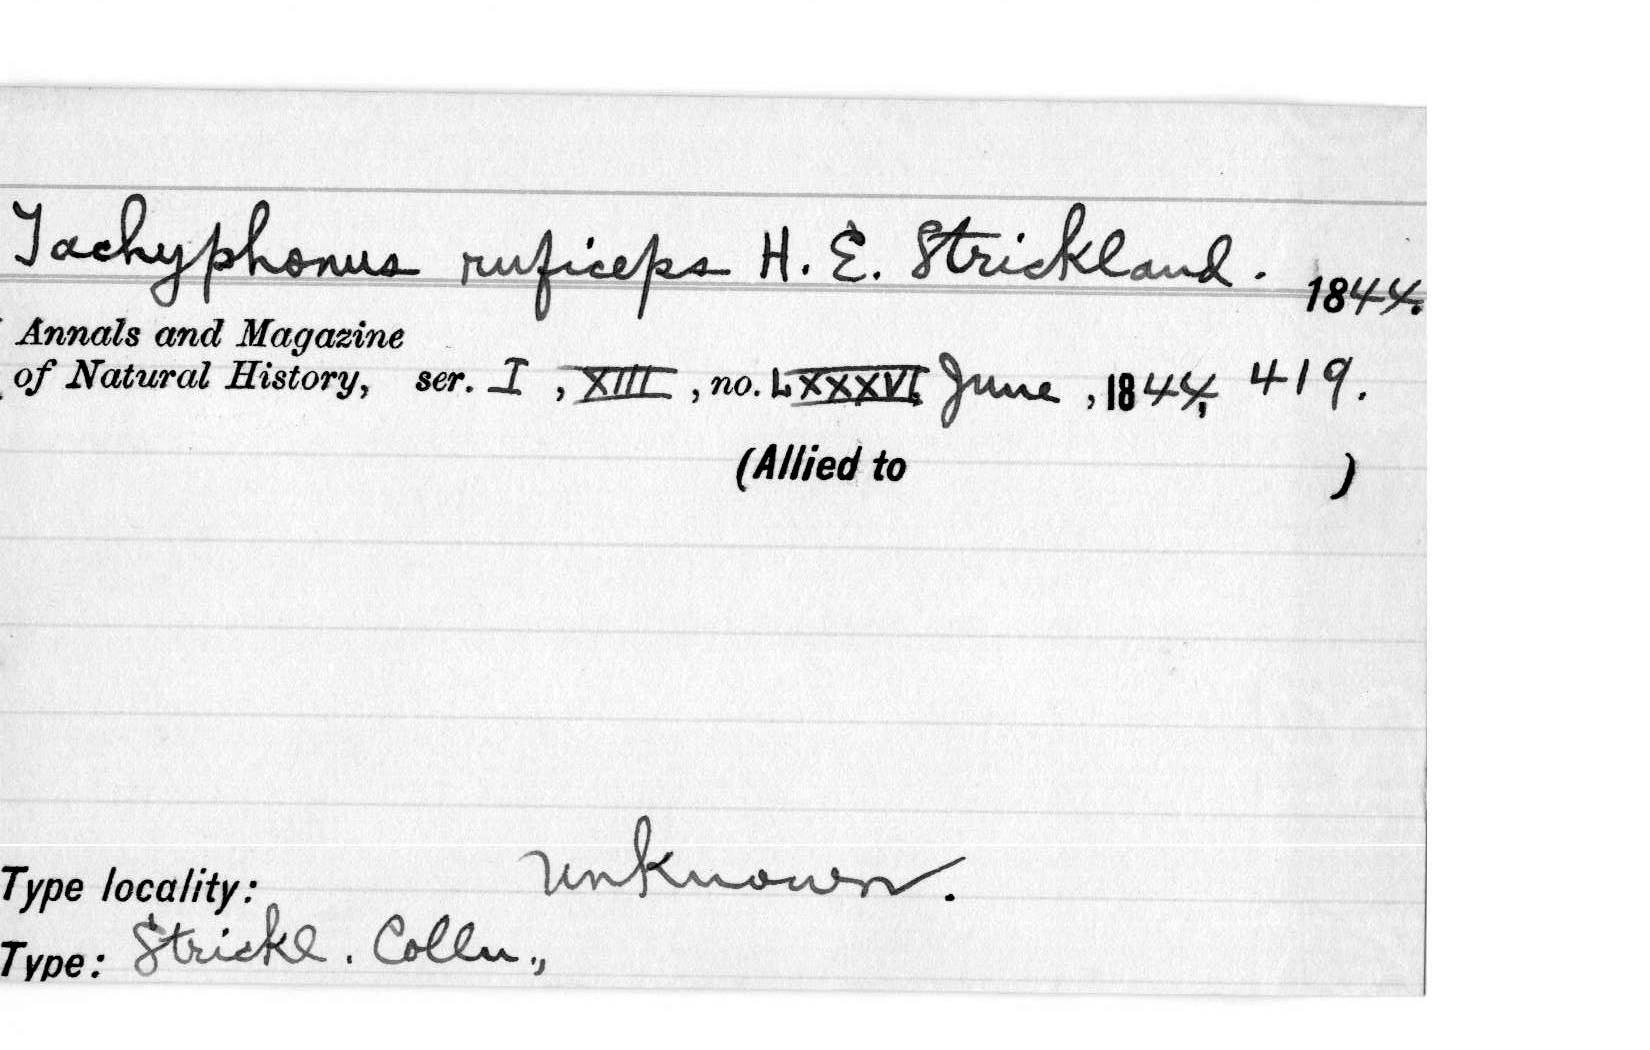 Tachyphonus ruficeps H. E. Strickland. 1844.
Annals and Magazine
of Natural History, ser. I , XIII , no. LXXXVI, June , 1844, 419.
(Allied to )
Type locality: unknown.
Type: Strickl. Colln.,